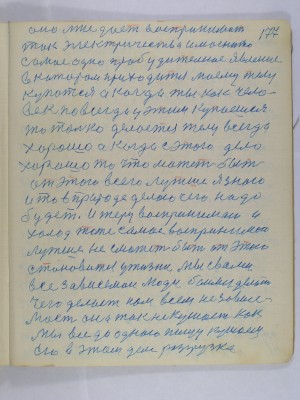 оно мне дает воспринимат 177
ток электричества и магнита
самое одно пробудительное явление
в котором приходится моему телу
купатся а когда ты как чело-
век повсегда у этим купаешися
то только делается телу всегда
хорошо а когда с этого дела
хорошо то что может быт
от этого всего лутше язного
и то в природе делого чего надо
будет. И теру воспринимаю и
холод тоже самое воспринимаю
лутше не сможет быт от этого
становится у жизни, мы с вами
все зависемои люди, боимся делат
чего делает нам всем не зависе-
мост он так не кушает как
мы все до одного пищу кушаем
его в этом деле разгрузка